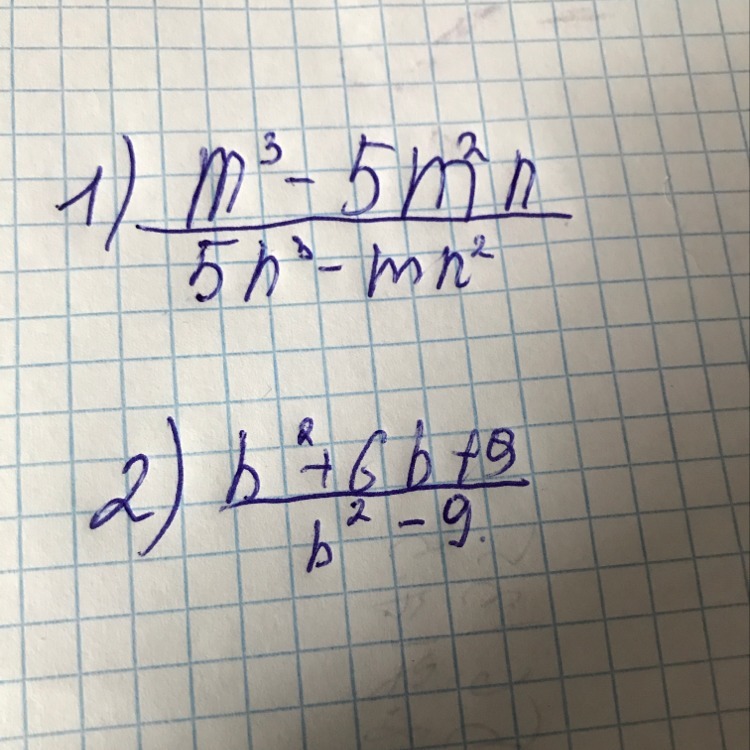 1) m³ - 5m²n
5n³ - mn²
2) b² + 6b + 9
b² - 9.